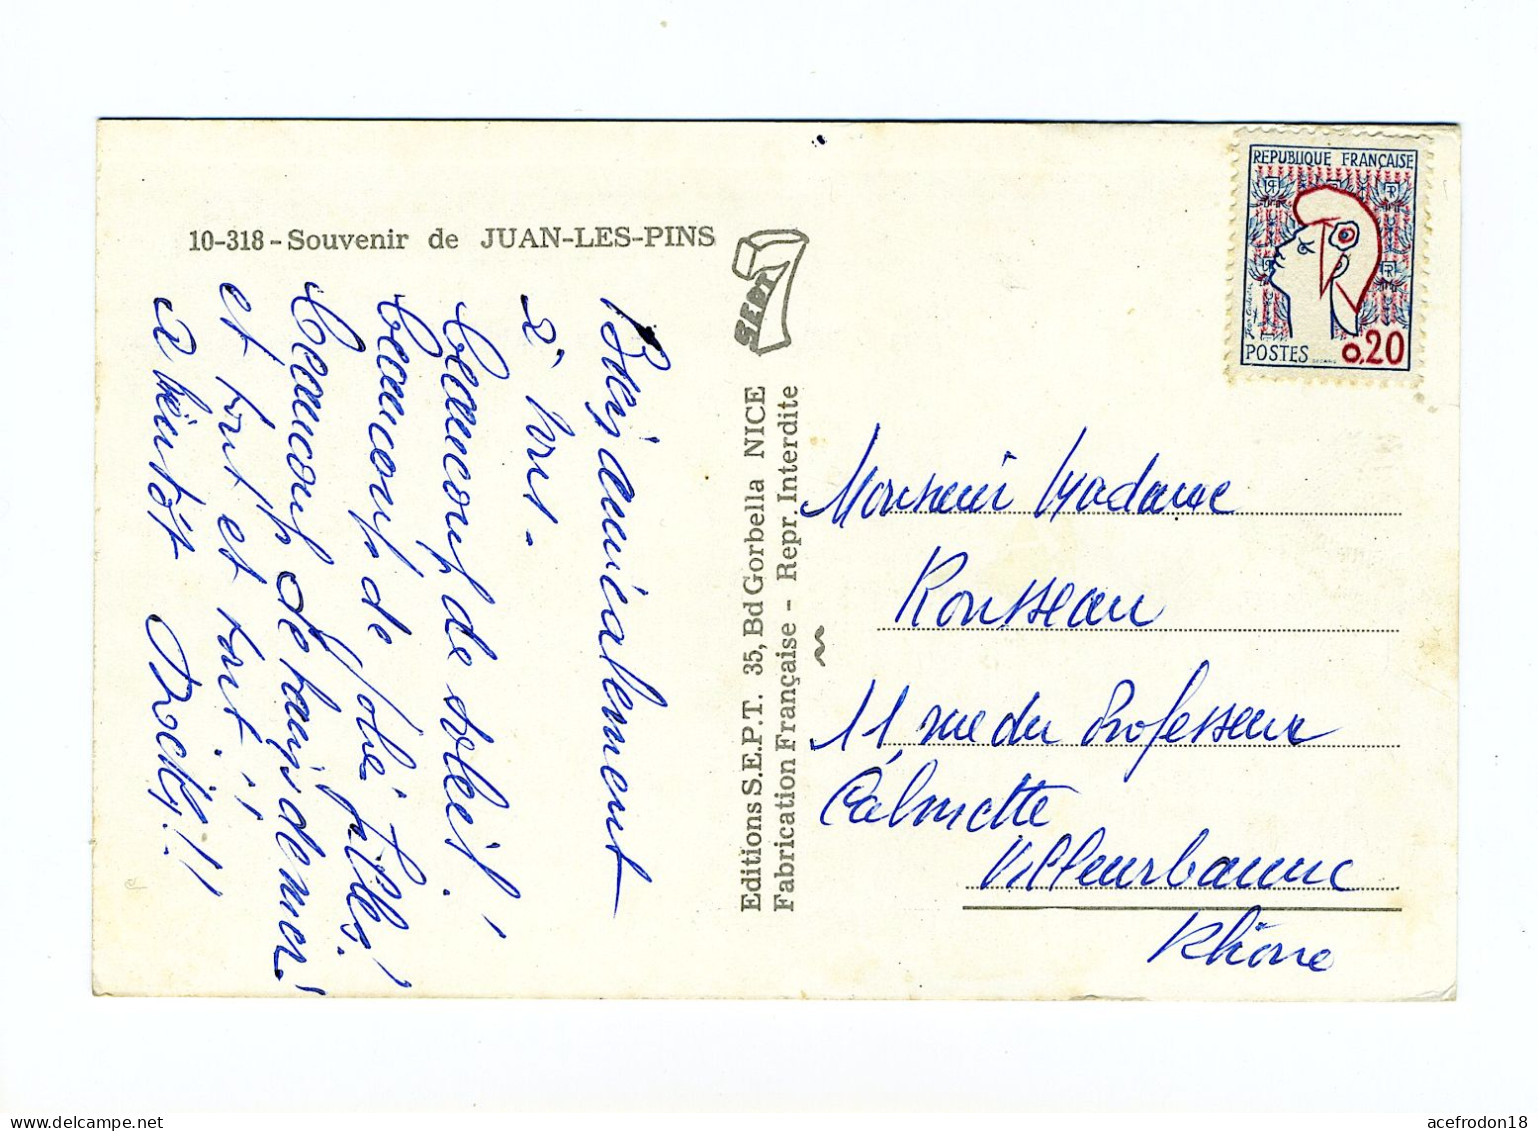 10-318 - Souvenir de JUAN-LES-PINS
SEPT
7
Editions S.E.P.T. 35, Bd Gorbella NICE
Fabrication Française - Repr. Interdite
REPUBLIQUE FRANÇAISE
RF
POSTES 0,20
Bien amicalement
à vous -
beaucoup de soleil !
beaucoup de jolie filles !
beaucoup de bains de mer !
et tout et tout !!
a bientôt
Monsieur Madame
Rousseau
11 rue du Professeur
Calmette
Villeurbanne
Rhône
acefrodon18